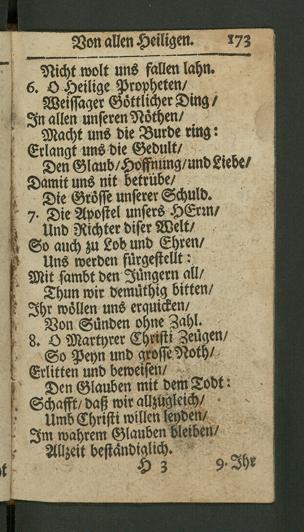 Von allen Heiligen. 173
Nicht wolt uns fallen lahn.
6. O Heilige Propheten/
Weissager Göttlicher Ding/
In allen unseren Nöthen/
Macht uns die Burde ring:
Erlangt uns die Gedult/
Den Glaub/Hoffnung/und Liebe/
Damit uns nit betrübe/
Die Grösse unserer Schuld.
7. Die Apostel unsers HErrn/
Und Richter diser Welt/
So auch zu Lob und Ehren/
Uns werden fürgestellt:
Mit sambt den Jüngern all/
Thun wir demüthig bitten/
Ihr wöllen uns erquicken/
Von Sünden ohne Zahl.
8. O Martyrer Christi Zeügen/
So Peyn und grosse Noth/
Erlitten und beweisen/
Den Glauben mit dem Todt:
Schafft/ daß wir allzugleich/
Umb Christi willen leyden/
Im wahrem Glauben bleiben/
Allzeit beständiglich.
H 3 9. Ihr